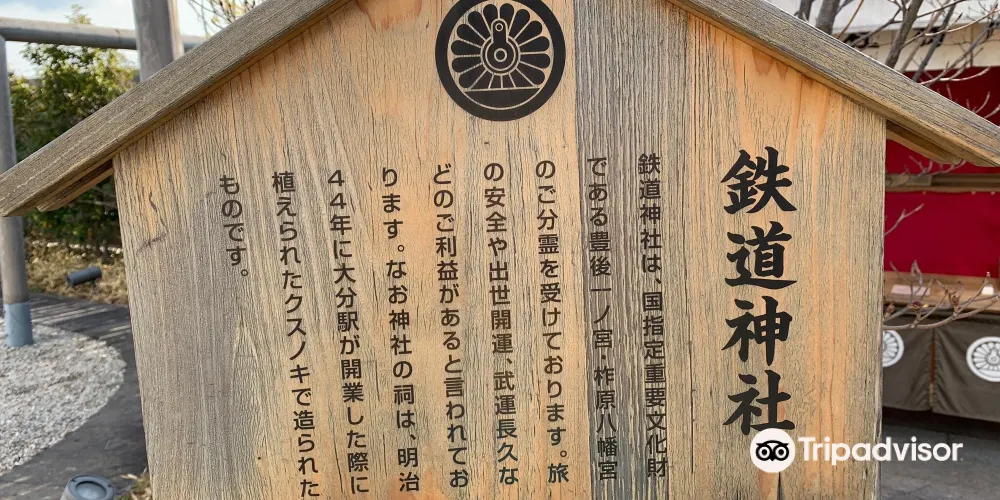 鉄道神社
鉄道神社は、国指定重要文化財
である豊後一ノ宮・柞原八幡宮
のご分霊を受けております。旅
の安全や出世開運、武運長久な
どのご利益があると言われてお
ります。なお神社の祠は、明治
44年に大分駅が開業した際に
植えられたクスノキで造られた
ものです。
Tripadvisor